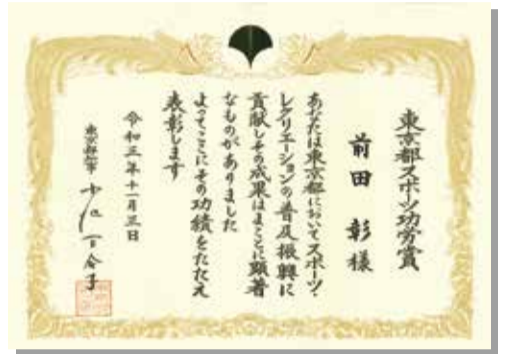 東京都スポーツ功労賞
前田 彰 様
あなたは東京都においてスポーツ・
レクリエーションの普及振興に
貢献しその成果はまことに顕著
なものがありました
よってここにその功績をたたえ
表彰します
令和三年十一月三日
東京都知事 小池百合子